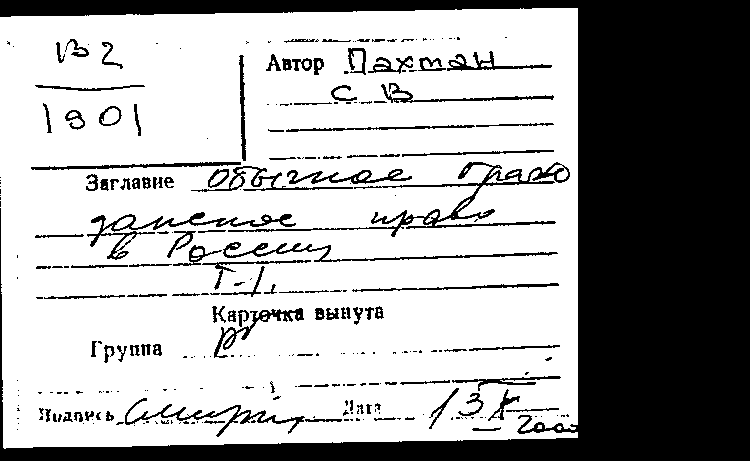 В2
1901
Автор Пахман
С В
Заглавие Обычное граж
данское право
в России
Т-1.
Карточка вынута
Группа
Подпись
Дата 13 X
2000